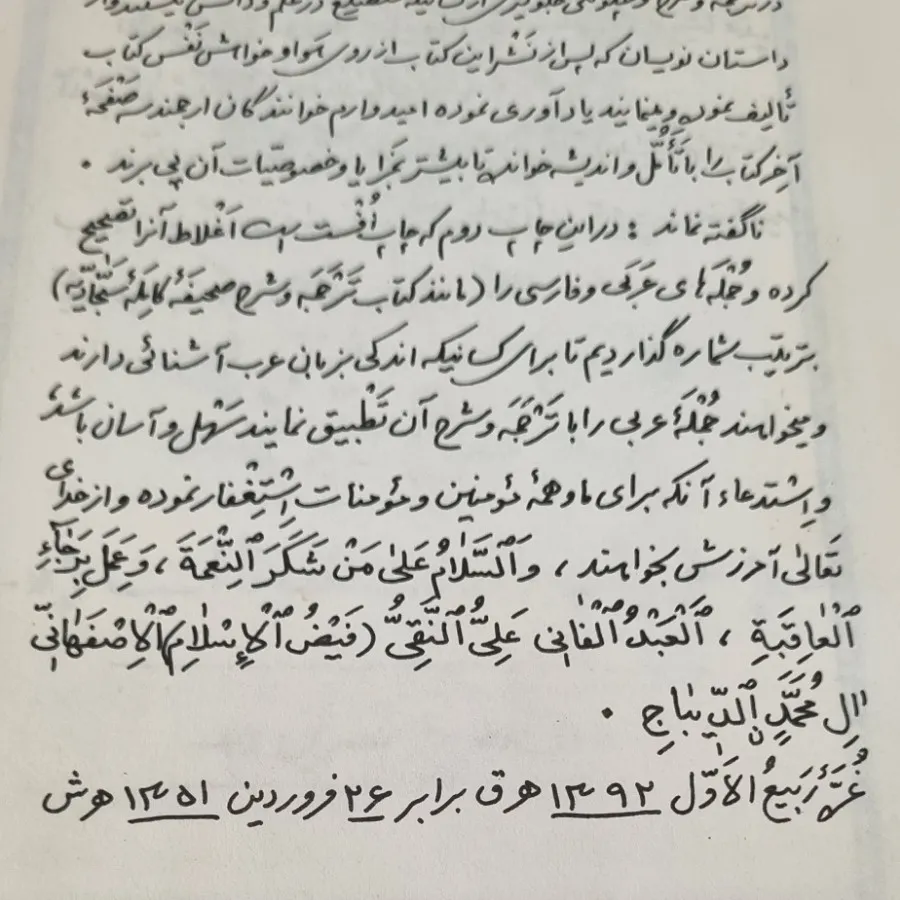 داستان نویسان که پس از نَشْر این کتاب از روی هوا و خواهش نَفْس کتاب
تألیف نموده و مینمایند یادآوری نموده امیدوارم خوانندگان ارجمند سه صَفْحَهٔ
آخِر کتاب را با تَأَمُّل و اندیشه خوانده تا بیشتر بمَزایا و خصوصیّات آن پی برند .
ناگفته نماند : در این چاپ دوم که چاپ اُفْست است اَغْلاط آنرا تصحیح
کرده و جُمْلَه‌های عَرَبی و فارسی را (مانند کتاب تَرْجَمَه و شرح صحیفَهٔ کامِلَهٔ سَجّادیّه)
بترتیب شماره گذاردیم تا برای کسانیکه اندکی بزبان عرب آشنائی دارند
و میخواهند جُمْلَهٔ عربی را با تَرْجَمَه و شرح آن تَطْبیق نمایند سَهْل و آسان باشد،
و اِسْتدعاء آنکه برای ما و همهٔ مؤمنین و مؤمنات اِسْتِغْفار نموده و از خدای
تَعالیٰ آمرزش بخواهند ، وَٱلسَّلامُ عَلیٰ مَنْ شَکَرَ ٱلنِّعْمَةَ ، وَ عَمِلَ بِرَجٰآءِ
ٱلْعٰاقِبَةِ ، ٱلْعَبْدُ ٱلْفٰانی عَلِیُّ ٱلنَّقِیُّ (فَیْضُ ٱلْإِسْلٰامِ) ٱلْاِصْفَهٰانِیُّ
اٰلِ مُحَمَّدٍ ٱلدّیٖبٰاجِ .
غُرَّهٔ رَبیعُ الْاَوَّل ۱۳۹۲ ه‍ ق برابر ۲۶ فروردین ۱۳۵۱ ه‍ ش